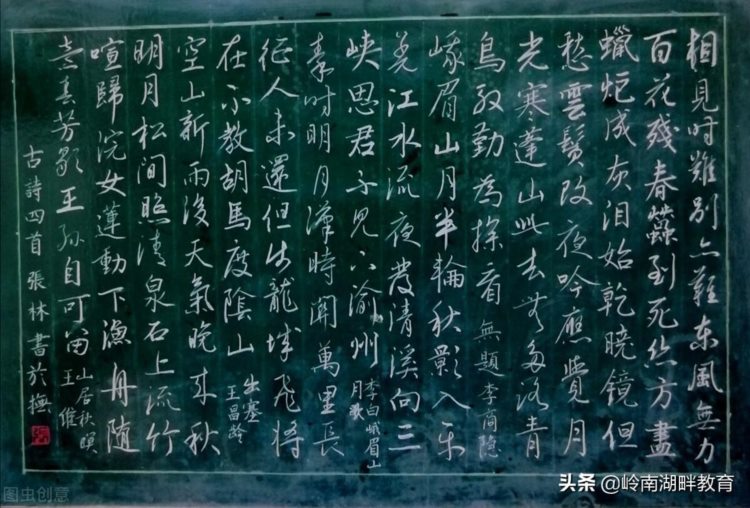 相見时難别亦難东風無力
百花殘春蠶到死丝方盡
蠟炬成灰泪始乾曉鏡但
愁雲鬓改夜吟應覺月
光寒蓬山此去无多路青
鳥殷勤為探看 無題 李商隐
峨眉山月半輪秋影入平
羌江水流夜发清溪向三
峡思君不見下渝州 李白峨眉山
月歌
秦时明月漢時関萬里長
征人未還但使龍城飛將
在不教胡馬度陰山 出塞
王昌龄
空山新雨後天氣晚来秋
明月松间照清泉石上流竹
喧歸浣女蓮動下漁舟随
意春芳歇王孙自可留 山居秋暝
王维
古詩四首張林書於撫
图虫创意
头条 @岭南湖畔教育